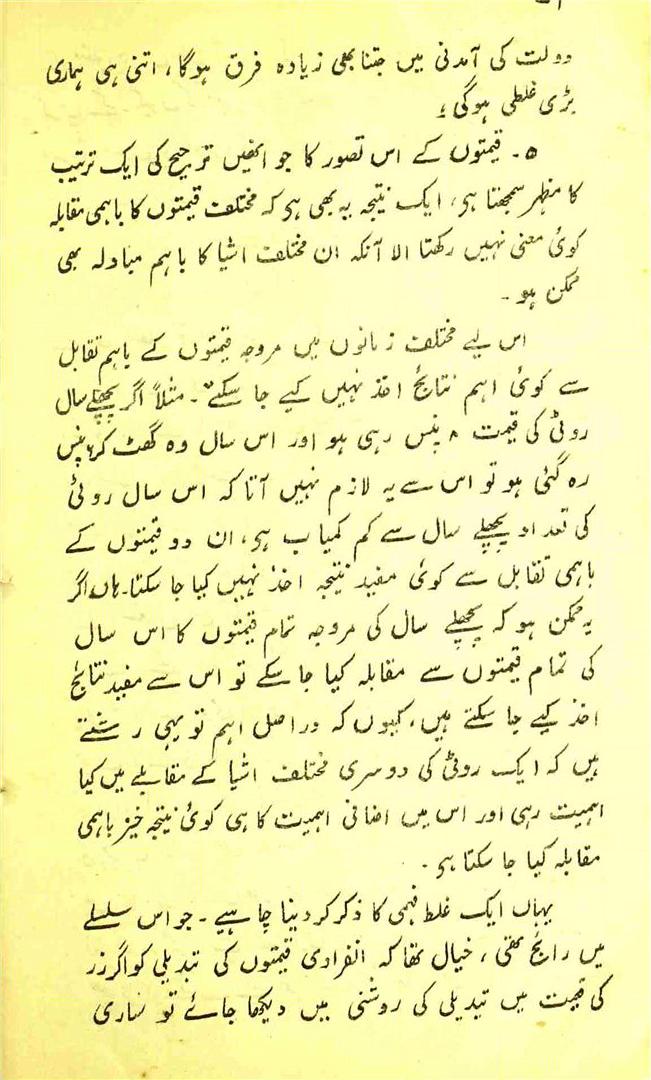 ۵۱
دولت کی آمدنی میں جتنا بھی زیادہ فرق ہوگا، اتنی ہی ہماری
بڑی غلطی ہوگی؛
۵۔ قیمتوں کے اس تصور کا جو انھیں ترجیح کی ایک ترتیب
کا مظہر سمجھتا ہی، ایک نتیجہ یہ بھی ہی کہ مختلف قیمتوں کا باہمی مقابلہ
کوئی معنی نہیں رکھتا الا آنکہ ان مختلف اشیا کا باہم مبادلہ بھی
ممکن ہو۔
اس لیے مختلف زمانوں میں مروجہ قیمتوں کے باہم تقابل
سے کوئی اہم نتائج اخذ نہیں کیے جا سکتے۔ مثلاً اگر پچھلے سال
روٹی کی قیمت ۸ پنس رہی ہو اور اس سال وہ گھٹ کر ۶ پنس
رہ گئی ہو تو اس سے یہ لازم نہیں آتا کہ اس سال روٹی
کی تعداد پچھلے سال سے کم کمیاب ہی، ان دو قیمتوں کے
باہمی تقابل سے کوئی مفید نتیجہ اخذ نہیں کیا جا سکتا۔ ہاں اگر
یہ ممکن ہو کہ پچھلے سال کی مروجہ تمام قیمتوں کا اس سال
کی تمام قیمتوں سے مقابلہ کیا جا سکے تو اس سے مفید نتائج
اخذ کیے جا سکتے ہیں، کیوں کہ دراصل اہم تو یہی رشتے
ہیں کہ ایک روٹی کی دوسری مختلف اشیا کے مقابلے میں کیا
اہمیت رہی اور اس میں اضافی اہمیت کا ہی کوئی نتیجہ خیز باہمی
مقابلہ کیا جا سکتا ہی۔
یہاں ایک غلط فہمی کا ذکر کر دینا چاہیے۔ جو اس سلسلے
میں رائج تھی، خیال تھا کہ انفرادی قیمتوں کی تبدیلی کو اگر زر
کی قیمت میں تبدیلی کی روشنی میں دیکھا جائے تو ساری